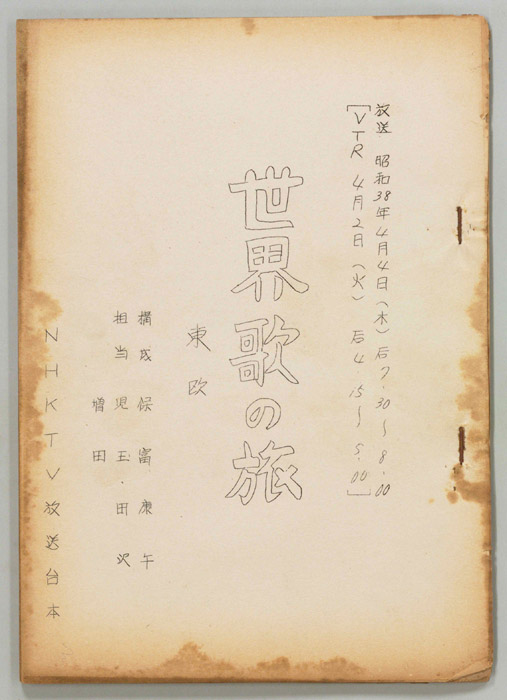 放送 昭和38年4月4日（木）后7.30〜8.00
[VTR 4月2日（火）后4.15〜5.00]
世界歌の旅
東欧
構成 保富康午
担当 児玉・田沢
増田
NHKTV放送台本